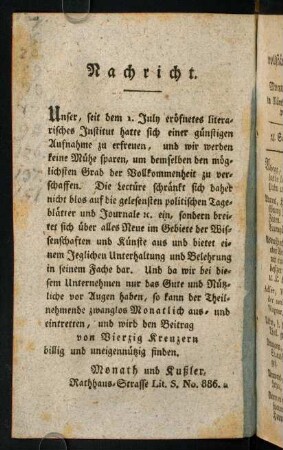 Nachricht.
Unser, seit dem 1. July eröfnetes litera-
risches Institut hatte sich einer günstigen
Aufnahme zu erfreuen, und wir werden
keine Mühe sparen, um demselben den mög-
lichsten Grad der Vollkommenheit zu ver-
schaffen. Die Lectüre schränkt sich daher
nicht blos auf die gelesensten politischen Tage-
blätter und Journale ꝛc. ein, sondern brei-
tet sich über alles Neue im Gebiete der Wis-
senschaften und Künste aus und bietet einem
Jeglichen Unterhaltung und Belehrung
in seinem Fache dar. Und da wir bei die-
sem Unternehmen nur das Gute und Nütz-
liche vor Augen haben, so kann der Theil-
nehmende zwanglos Monatlich aus- und
eintretten, und wird den Beitrag
von Vierzig Kreuzern
billig und uneigennützig finden.
Monath und Kußler,
Rathhaus-Strasse Lit. S. No. 886.